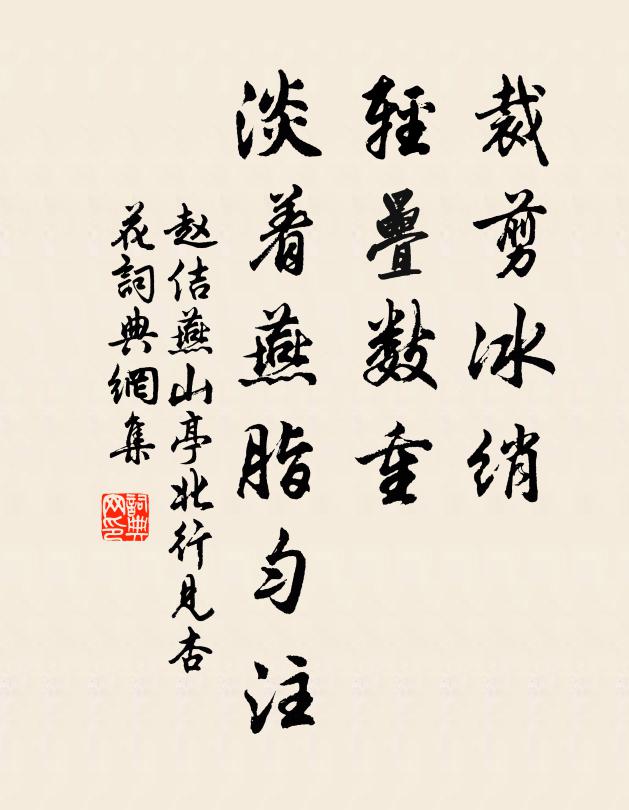 裁剪冰绡
輕疊數重
淡着燕脂匀注
赵佶燕山亭北行见杏
花詞典網集
詞典
网印